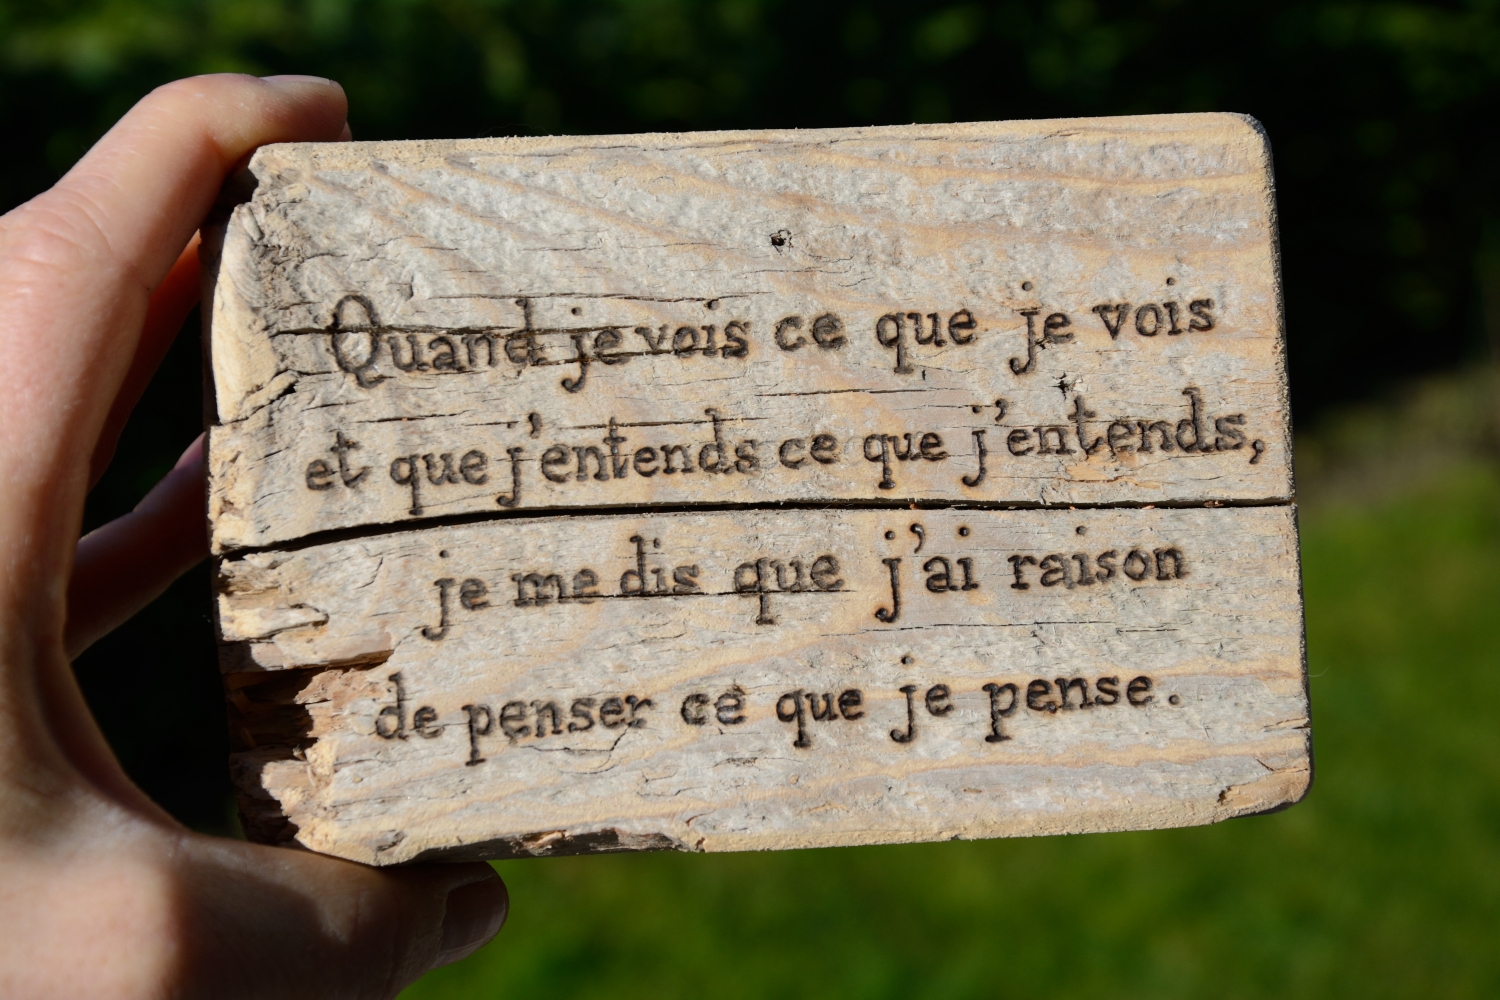 Quand je vois ce que je vois
et que j'entends ce que j'entends,
je me dis que j'ai raison
de penser ce que je pense.